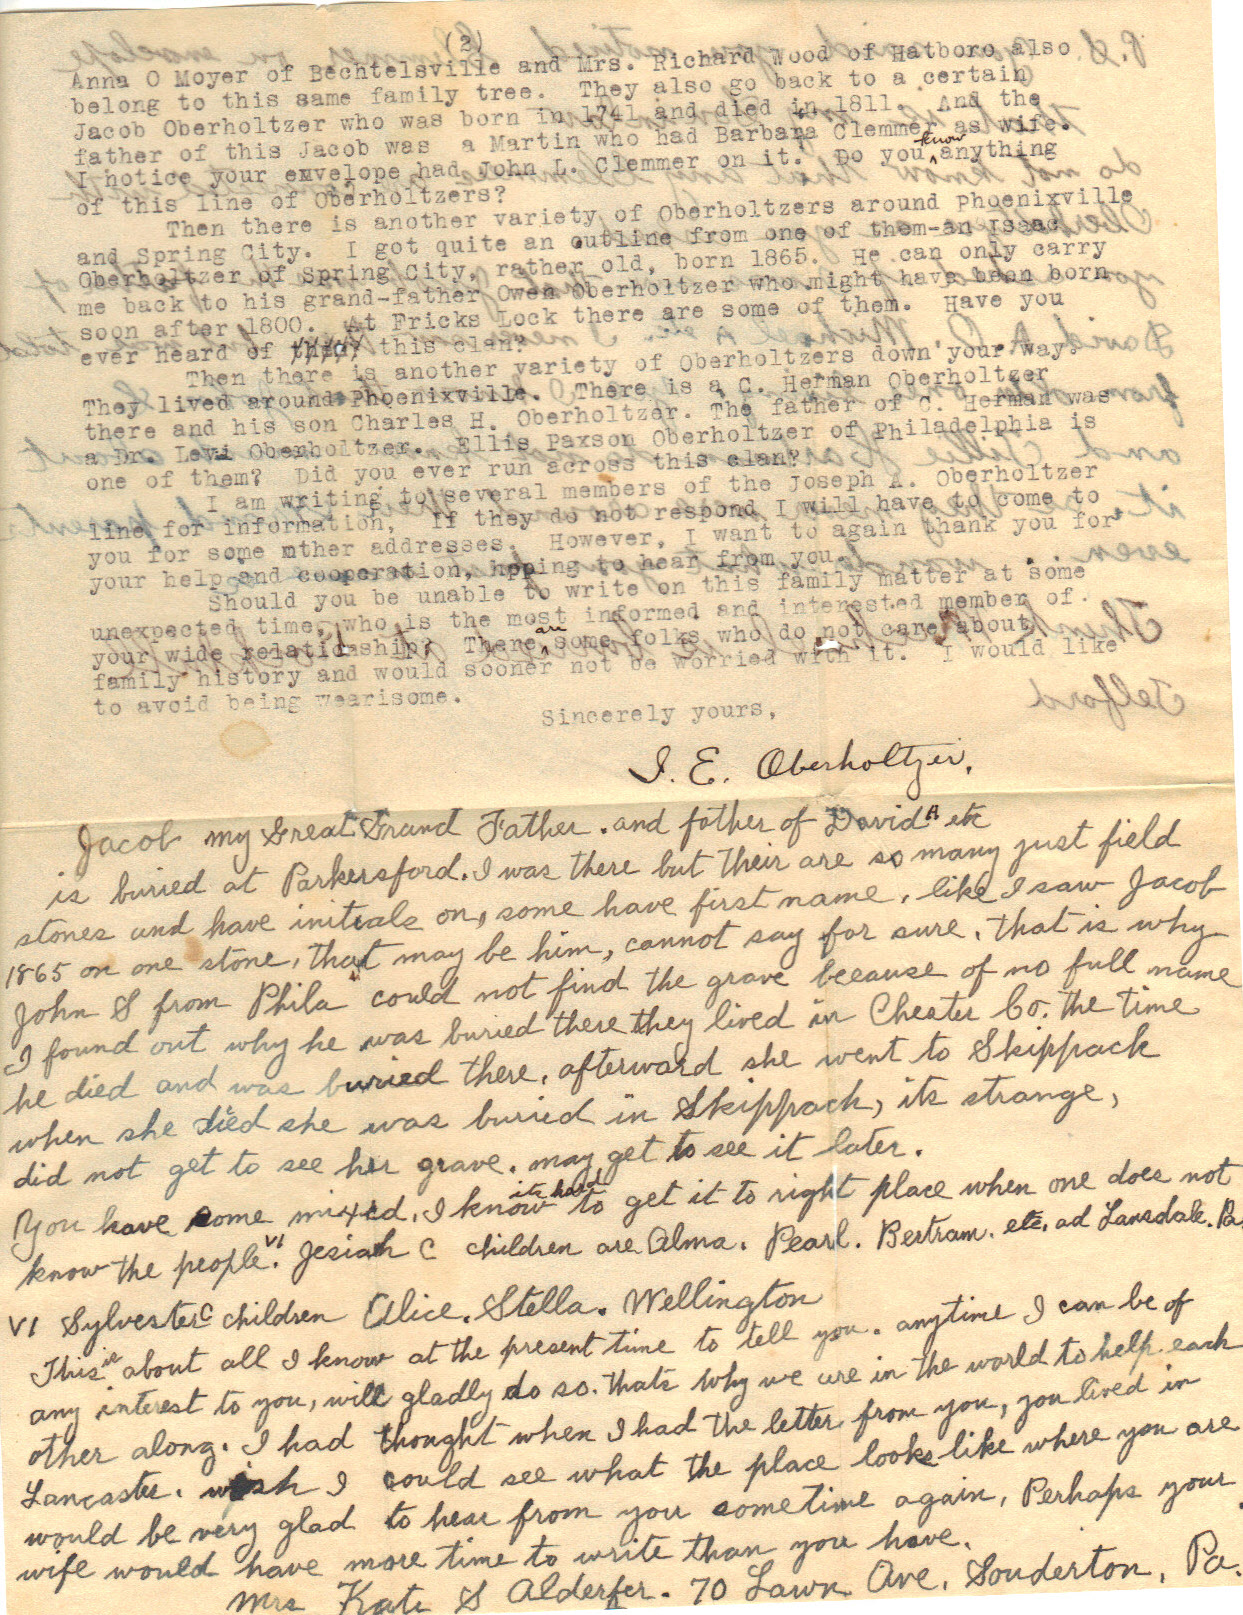 (2)
Anna O Moyer of Bechtelsville and Mrs. Richard Wood of Hatboro also
belong to this same family tree. They also go back to a certain
Jacob Oberholtzer who was born in 1741 and died in 1811. And the
father of this Jacob was a Martin who had Barbara Clemmer as wife.
I notice your envelope had John L. Clemmer on it. Do you know anything
of this line of Oberholtzers?
Then there is another variety of Oberholtzers around Phoenixville
and Spring City. I got quite an outline from one of them-an Isaac
Oberholtzer of Spring City, rather old, born 1865. He can only carry
me back to his grand-father Owen Oberholtzer who might have been born
soon after 1800. At Fricks Lock there are some of them. Have you
ever heard of this clan?
Then there is another variety of Oberholtzers down your way.
They lived around Phoenixville. There is a C. Herman Oberholtzer
there and his son Charles H. Oberholtzer. The father of C. Herman was
a Dr. Levi Oberholtzer. Ellis Paxson Oberholtzer of Philadelphia is
one of them? Did you ever run across this clan?
I am writing to several members of the Joseph A. Oberholtzer
line for information, If they do not respond I will have to come to
you for some other addresses. However, I want to again thank you for
your help and cooperation, hoping to hear from you.
Should you be unable to write on this family matter at some
unexpected time, who is the most informed and interested member of
your wide relationship? There are some folks who do not care about
family history and would sooner not be worried with it. I would like
to avoid being wearisome.
Sincerely yours,
I. E. Oberholtzer.
Jacob my Great Grand Father. and father of David A etc
is buried at Parkersford. I was there but their are so many just field
stones and have initials on, some have first name, like I saw Jacob
1865 on one stone, that may be him, cannot say for sure, that is why
John S from Phila could not find the grave because of no full name
I found out why he was buried there they lived in Chester Co. the time
he died and was buried there, afterward she went to Skippack
when she died she was buried in Skippack, its strange,
did not get to see her grave. may get to see it later.
You have some mixed, I know its hard to get it to right place when one does not
know the people. VI Jesiah C children are Alma. Pearl. Bertram. etc. ad Lansdale. Pa
VI Sylvester C children Alice. Stella. Wellington
This is about all I know at the present time to tell you. anytime I can be of
any interest to you, will gladly do so. thats why we are in the world to help each
other along. I had thought when I had the letter from you, you lived in
Lancaster. wish I could see what the place looks like where you are
would be very glad to hear from you sometime again, Perhaps your
wife would have more time to write than you have.
Mrs Kate S Alderfer. 70 Lawn Ave, Souderton, Pa.